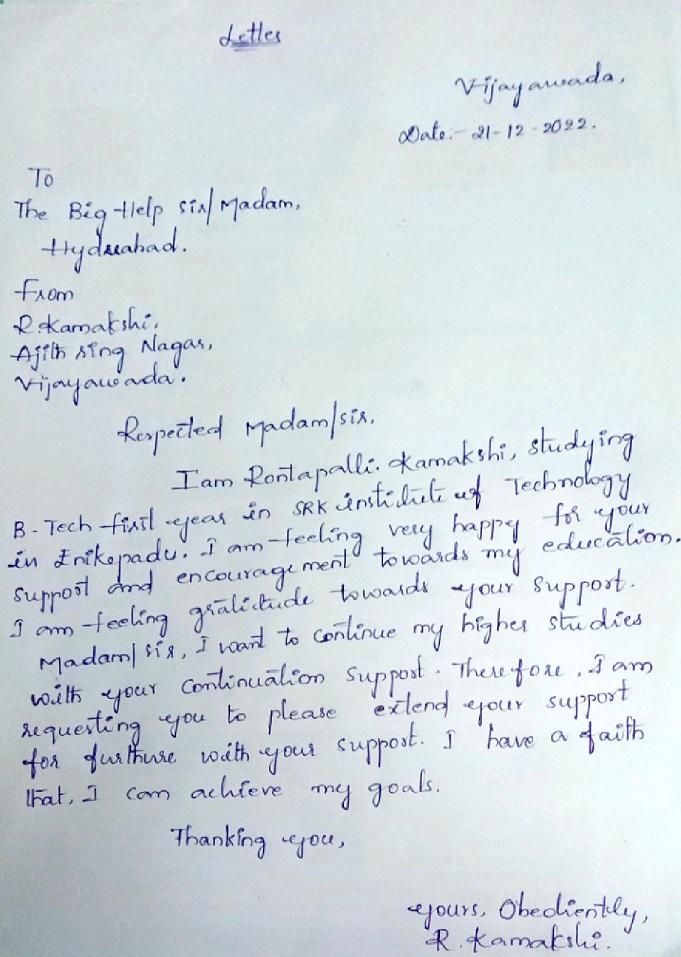 Letter
Vijayawada,
Date:- 21-12-2022.
To
The Big Help sir/Madam,
Hyderabad.
From
R.Kamakshi,
Ajith sing Nagar,
Vijayawada.
Respected Madam/sir,
I am Rontapalli. Kamakshi, studying
B-Tech first year in SRK institute of Technology
in Enikepadu. I am feeling very happy for your
support and encouragement towards my education.
I am feeling gratitude towards your support.
Madam/sir, I want to continue my higher studies
with your continuation support. Therefore, I am
requesting you to please extend your support
for furthure with your support. I have a faith
that, I can achieve my goals.
Thanking you,
yours, Obediently,
R. Kamakshi.